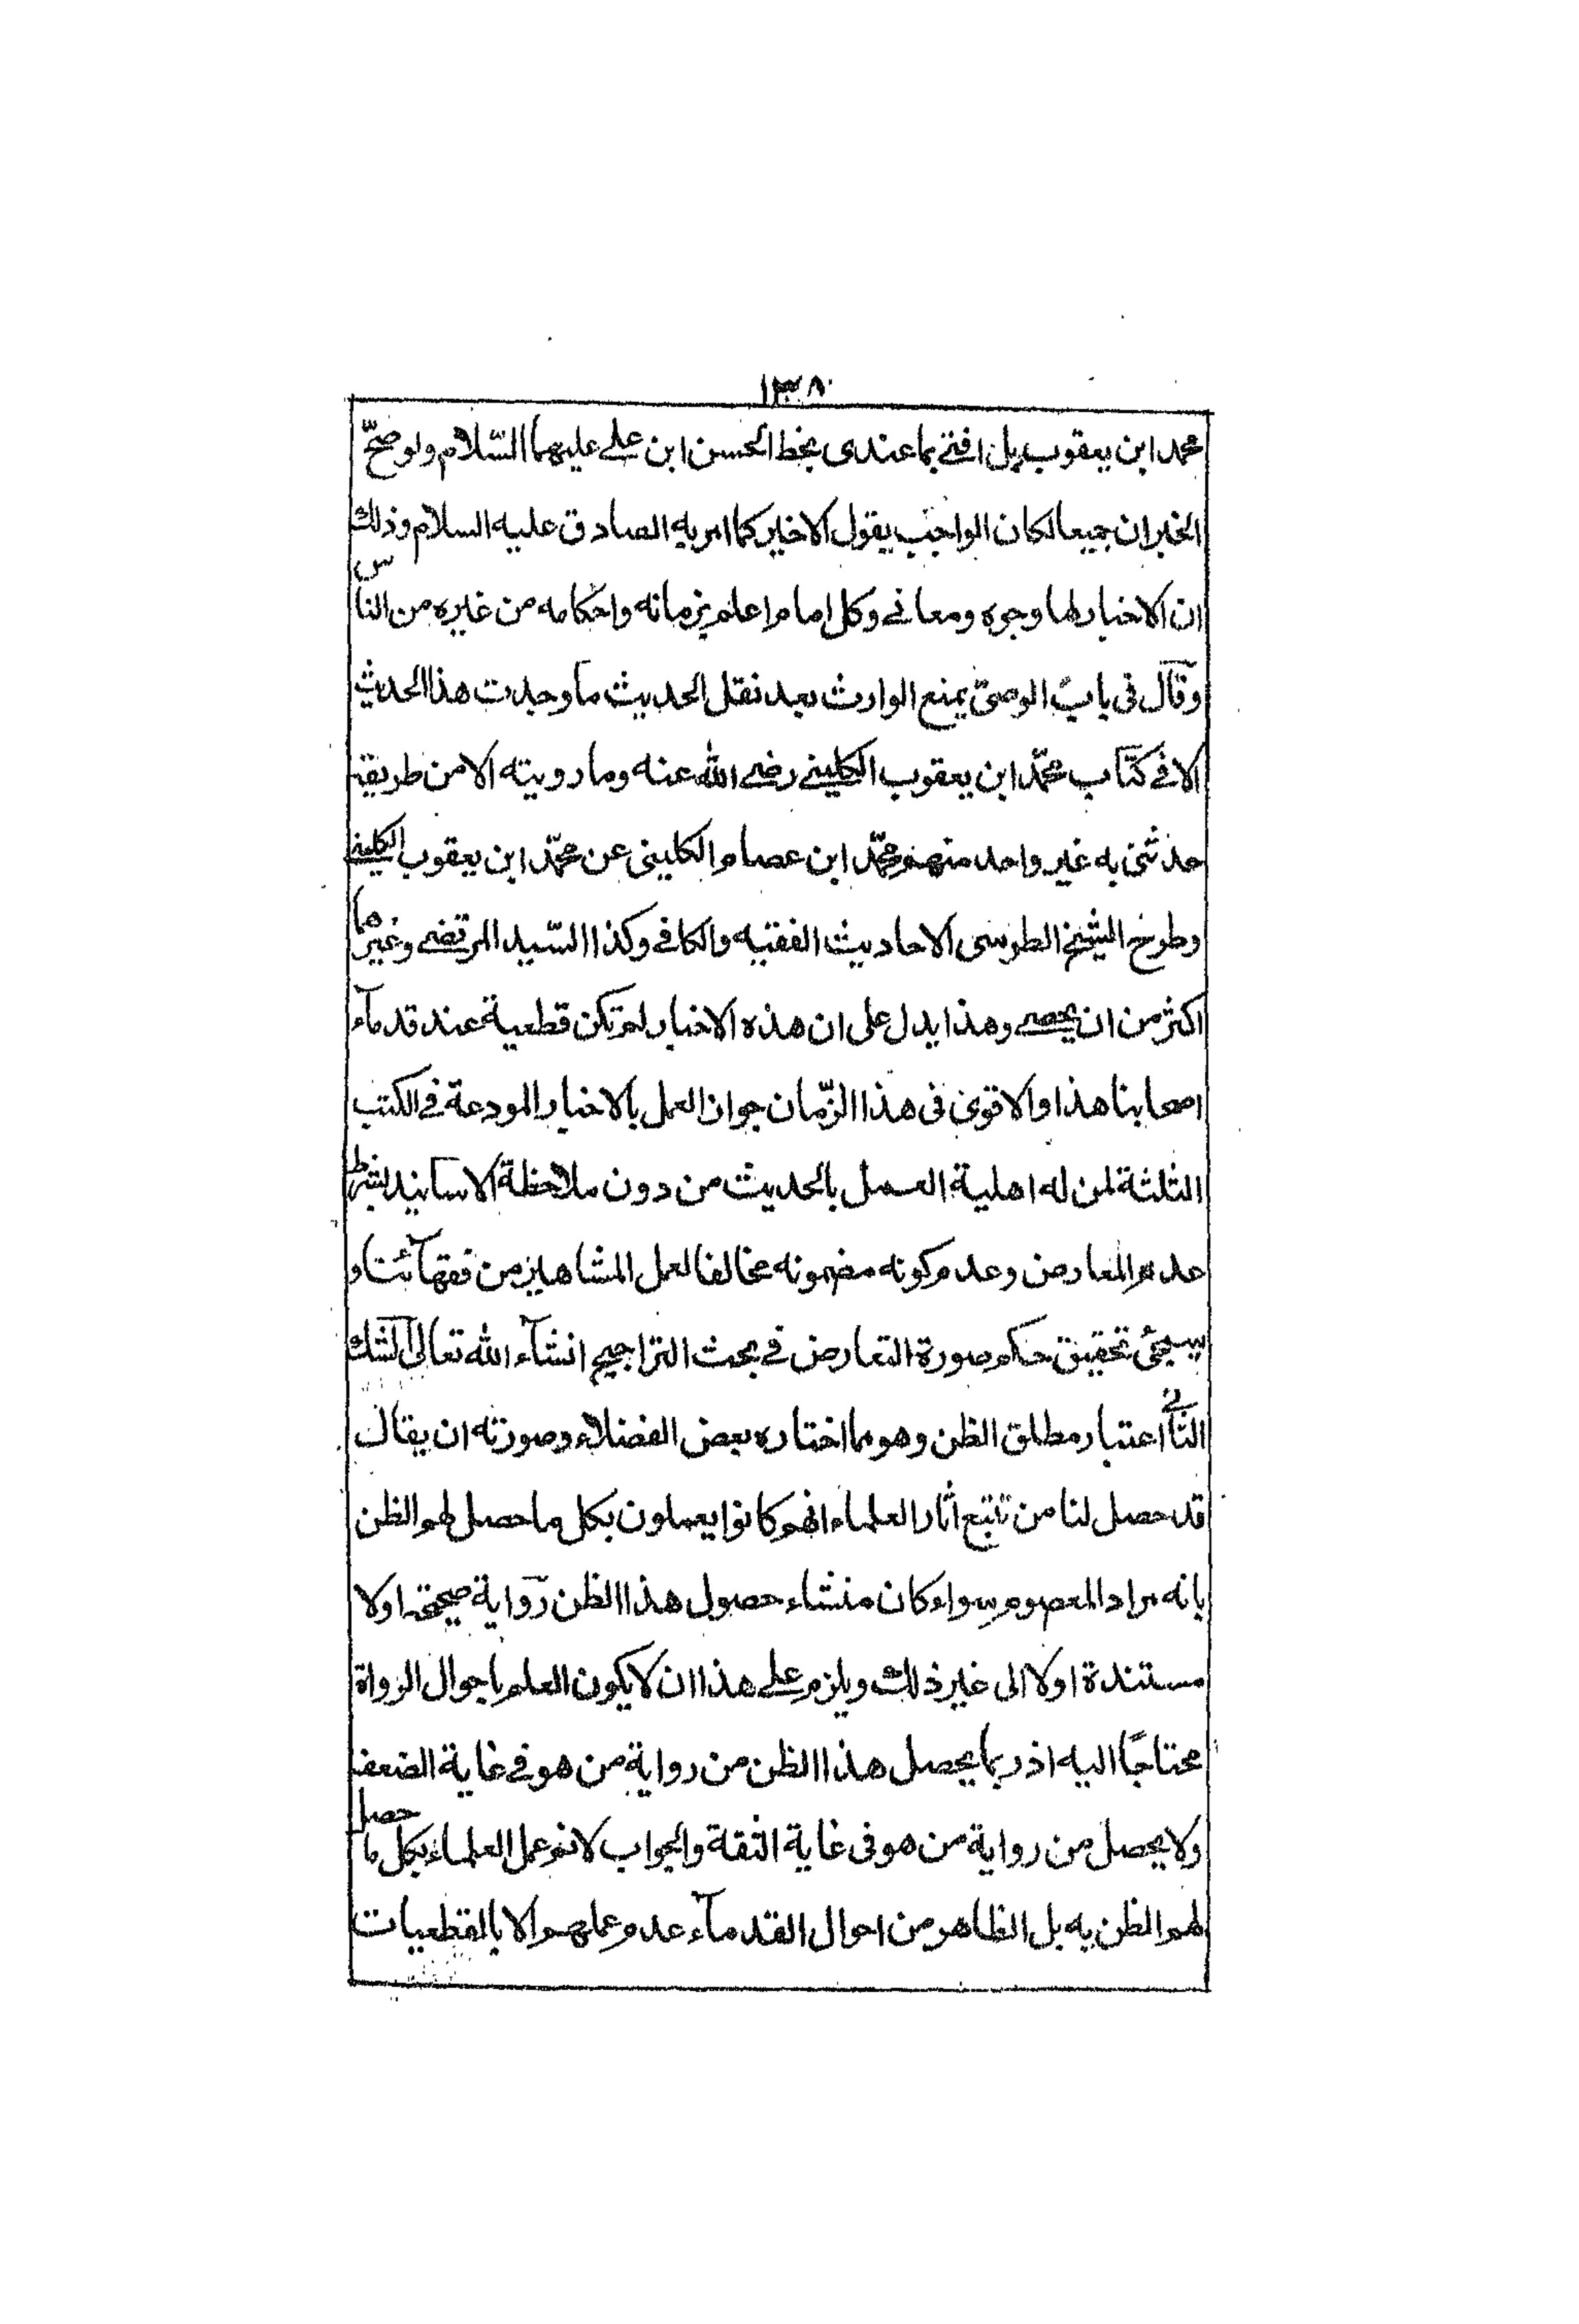 ١٣٨
محمد ابن يعقوب بل افتى بما عندى بخط الحسن ابن على عليهما السّلام ولو صحّ
الخبران جميعا لكان الواجب بقول الاخير كما امر به الصادق عليه السلام وذلك
ان الاخبار لها وجوه ومعانى وكل امام اعلم بزمانه واحكامه من غيره من الناس
وقال فى باب الوصىّ يمنع الوارث بعد نقل الحديث ما وجدت هذا الحديث
الا فى كتاب محمّد ابن يعقوب الكلينى رضى الله عنه وما رويته الا من طريقه
حدثنى به غير واحد منهم محمّد ابن عصام الكلينى عن محمّد ابن يعقوب الكلينى
وطرح الشيخ الطوسى الاحاديث الفقيه والكافى وكذا السّيد المرتضى وغيرهما
اكثر من ان يحصى وهذا يدل على ان هذه الاخبار لم تكن قطعية عند قدمآء
اصحابنا هذا والاقوى فى هذا الزّمان جواز العمل بالاخبار المودعة فى الكتب
الثلثة لمن له اهلية العمل بالحديث من دون ملاحظة الاسانيد بشرط
عدم المعارض وعدم كونه مضمونه مخالفا لعمل المشاهير من فقهآئنا و
سيجئ تحقيق حكم صورة التعارض فى بحث التراجيح انشآء الله تعالى الشك
الثانى اعتبار مطلق الظن وهو مما اختاره بعض الفضلاء وصورته ان يقال
قد حصل لنا من تتبع اثار العلماء انهم كانوا يعملون بكل ما حصل لهم الظن
بانه مراد المعصوم سواء كان منشاء حصول هذا الظن رواية صحيحة اولا
مستندة اولا الى غير ذلك ويلزم على هذا ان لا يكون العلم باحوال الرواة
محتاجًا اليه اذ ربما يحصل هذا الظن من رواية من هو فى غاية الضعف
ولا يحصل من رواية من هو فى غاية الثقة والجواب لانم عمل العلماء بكل ما حصل
لهم الظن به بل الظاهر من احوال القدمآء عدم عملهم الا بالقطعيات